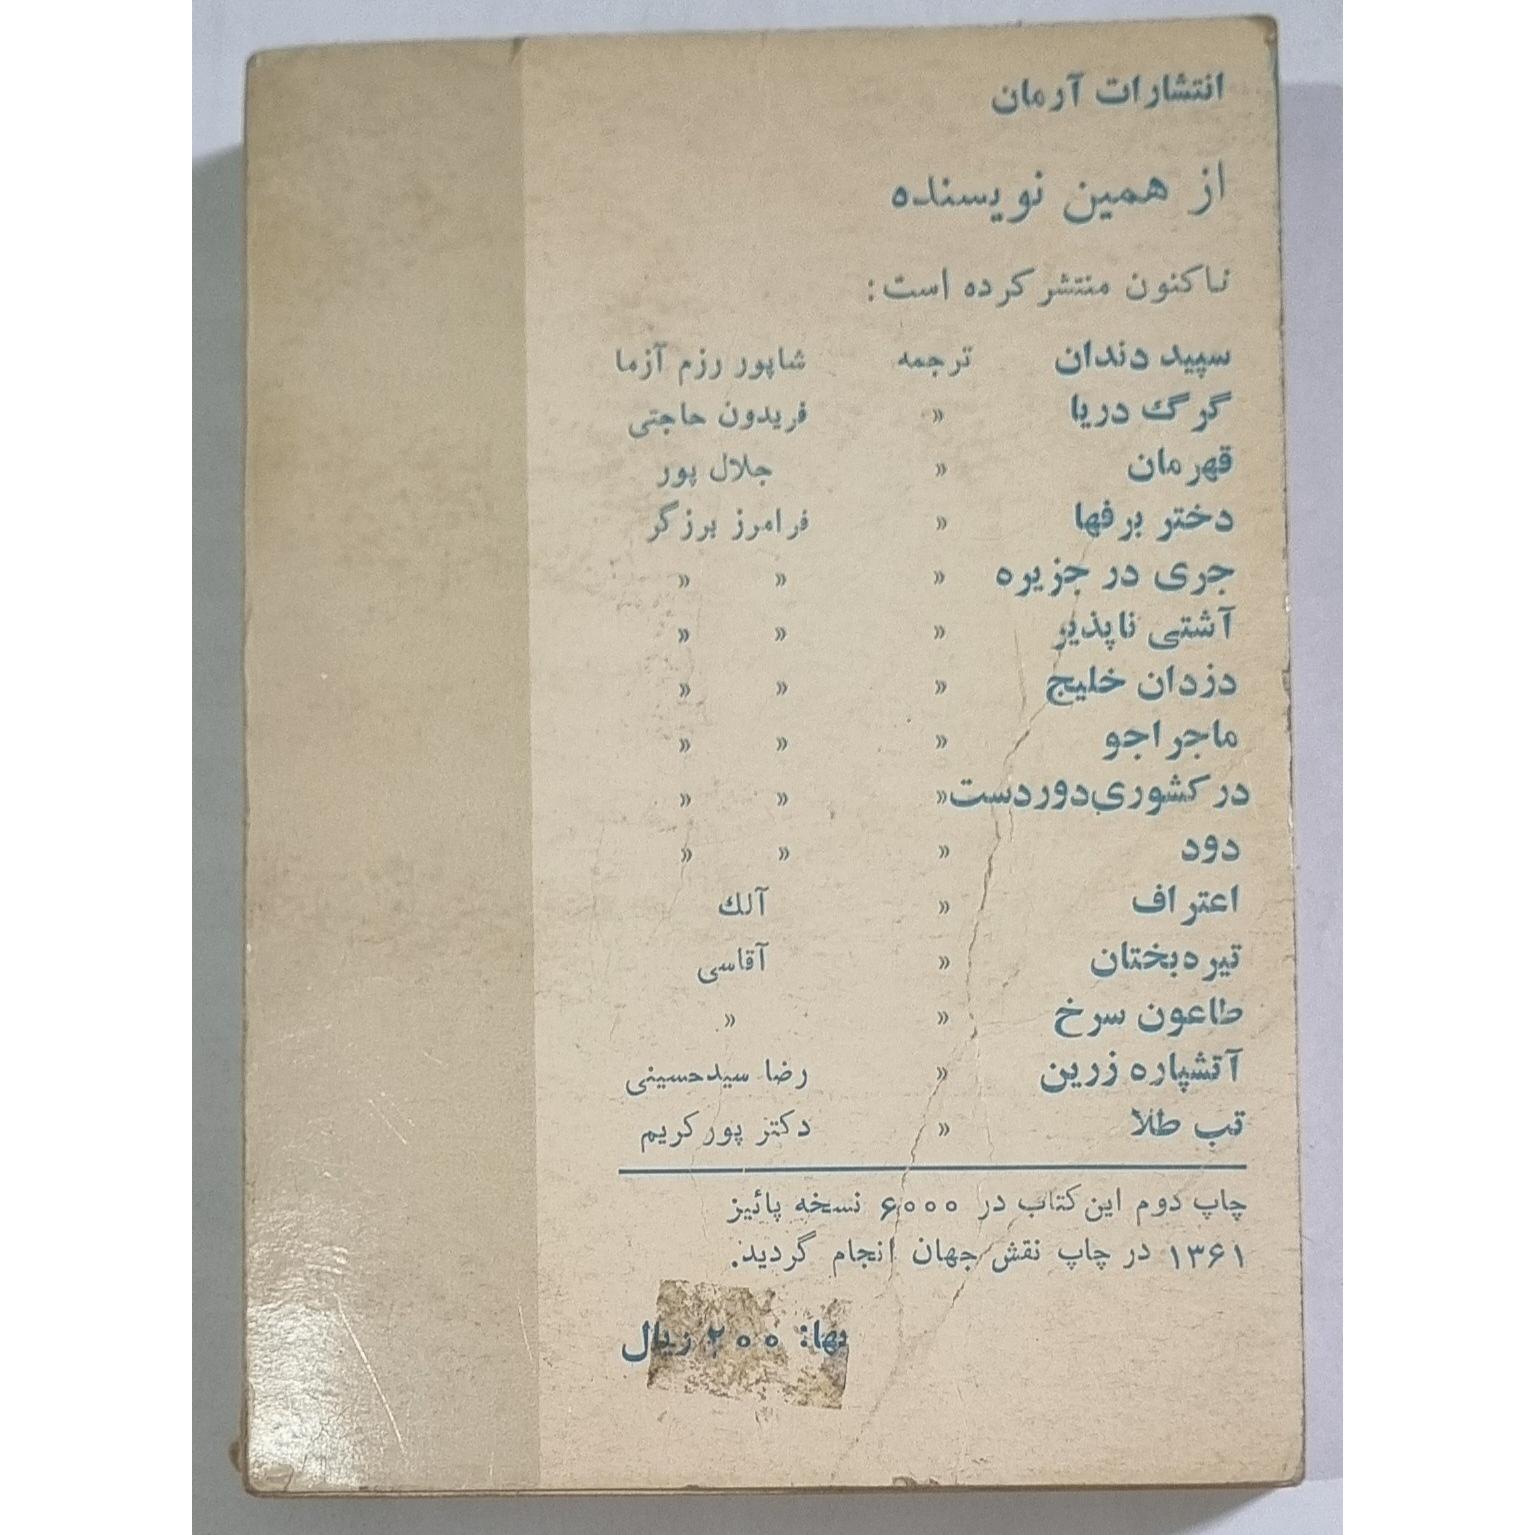 انتشارات آرمان
از همین نویسنده
تاکنون منتشر کرده است:
سپید دندان ترجمه شاپور رزم آزما
گرگ دریا » فریدون حاجتی
قهرمان » جلال پور
دختر برفها » فرامرز برزگر
جری در جزیره » » »
آشتی ناپذیر » » »
دزدان خلیج » » »
ماجراجو » » »
در کشوری دوردست » » »
دود » » »
اعتراف » آلك
تیره‌بختان » آقاسی
طاعون سرخ » »
آتشپاره زرین » رضا سیدحسینی
تب طلا » دکتر پورکریم
چاپ دوم این کتاب در ۶۰۰۰ نسخه پائیز
۱۳۶۱ در چاپ نقش جهان انجام گردید.
بها: ۲۰۰ ریال